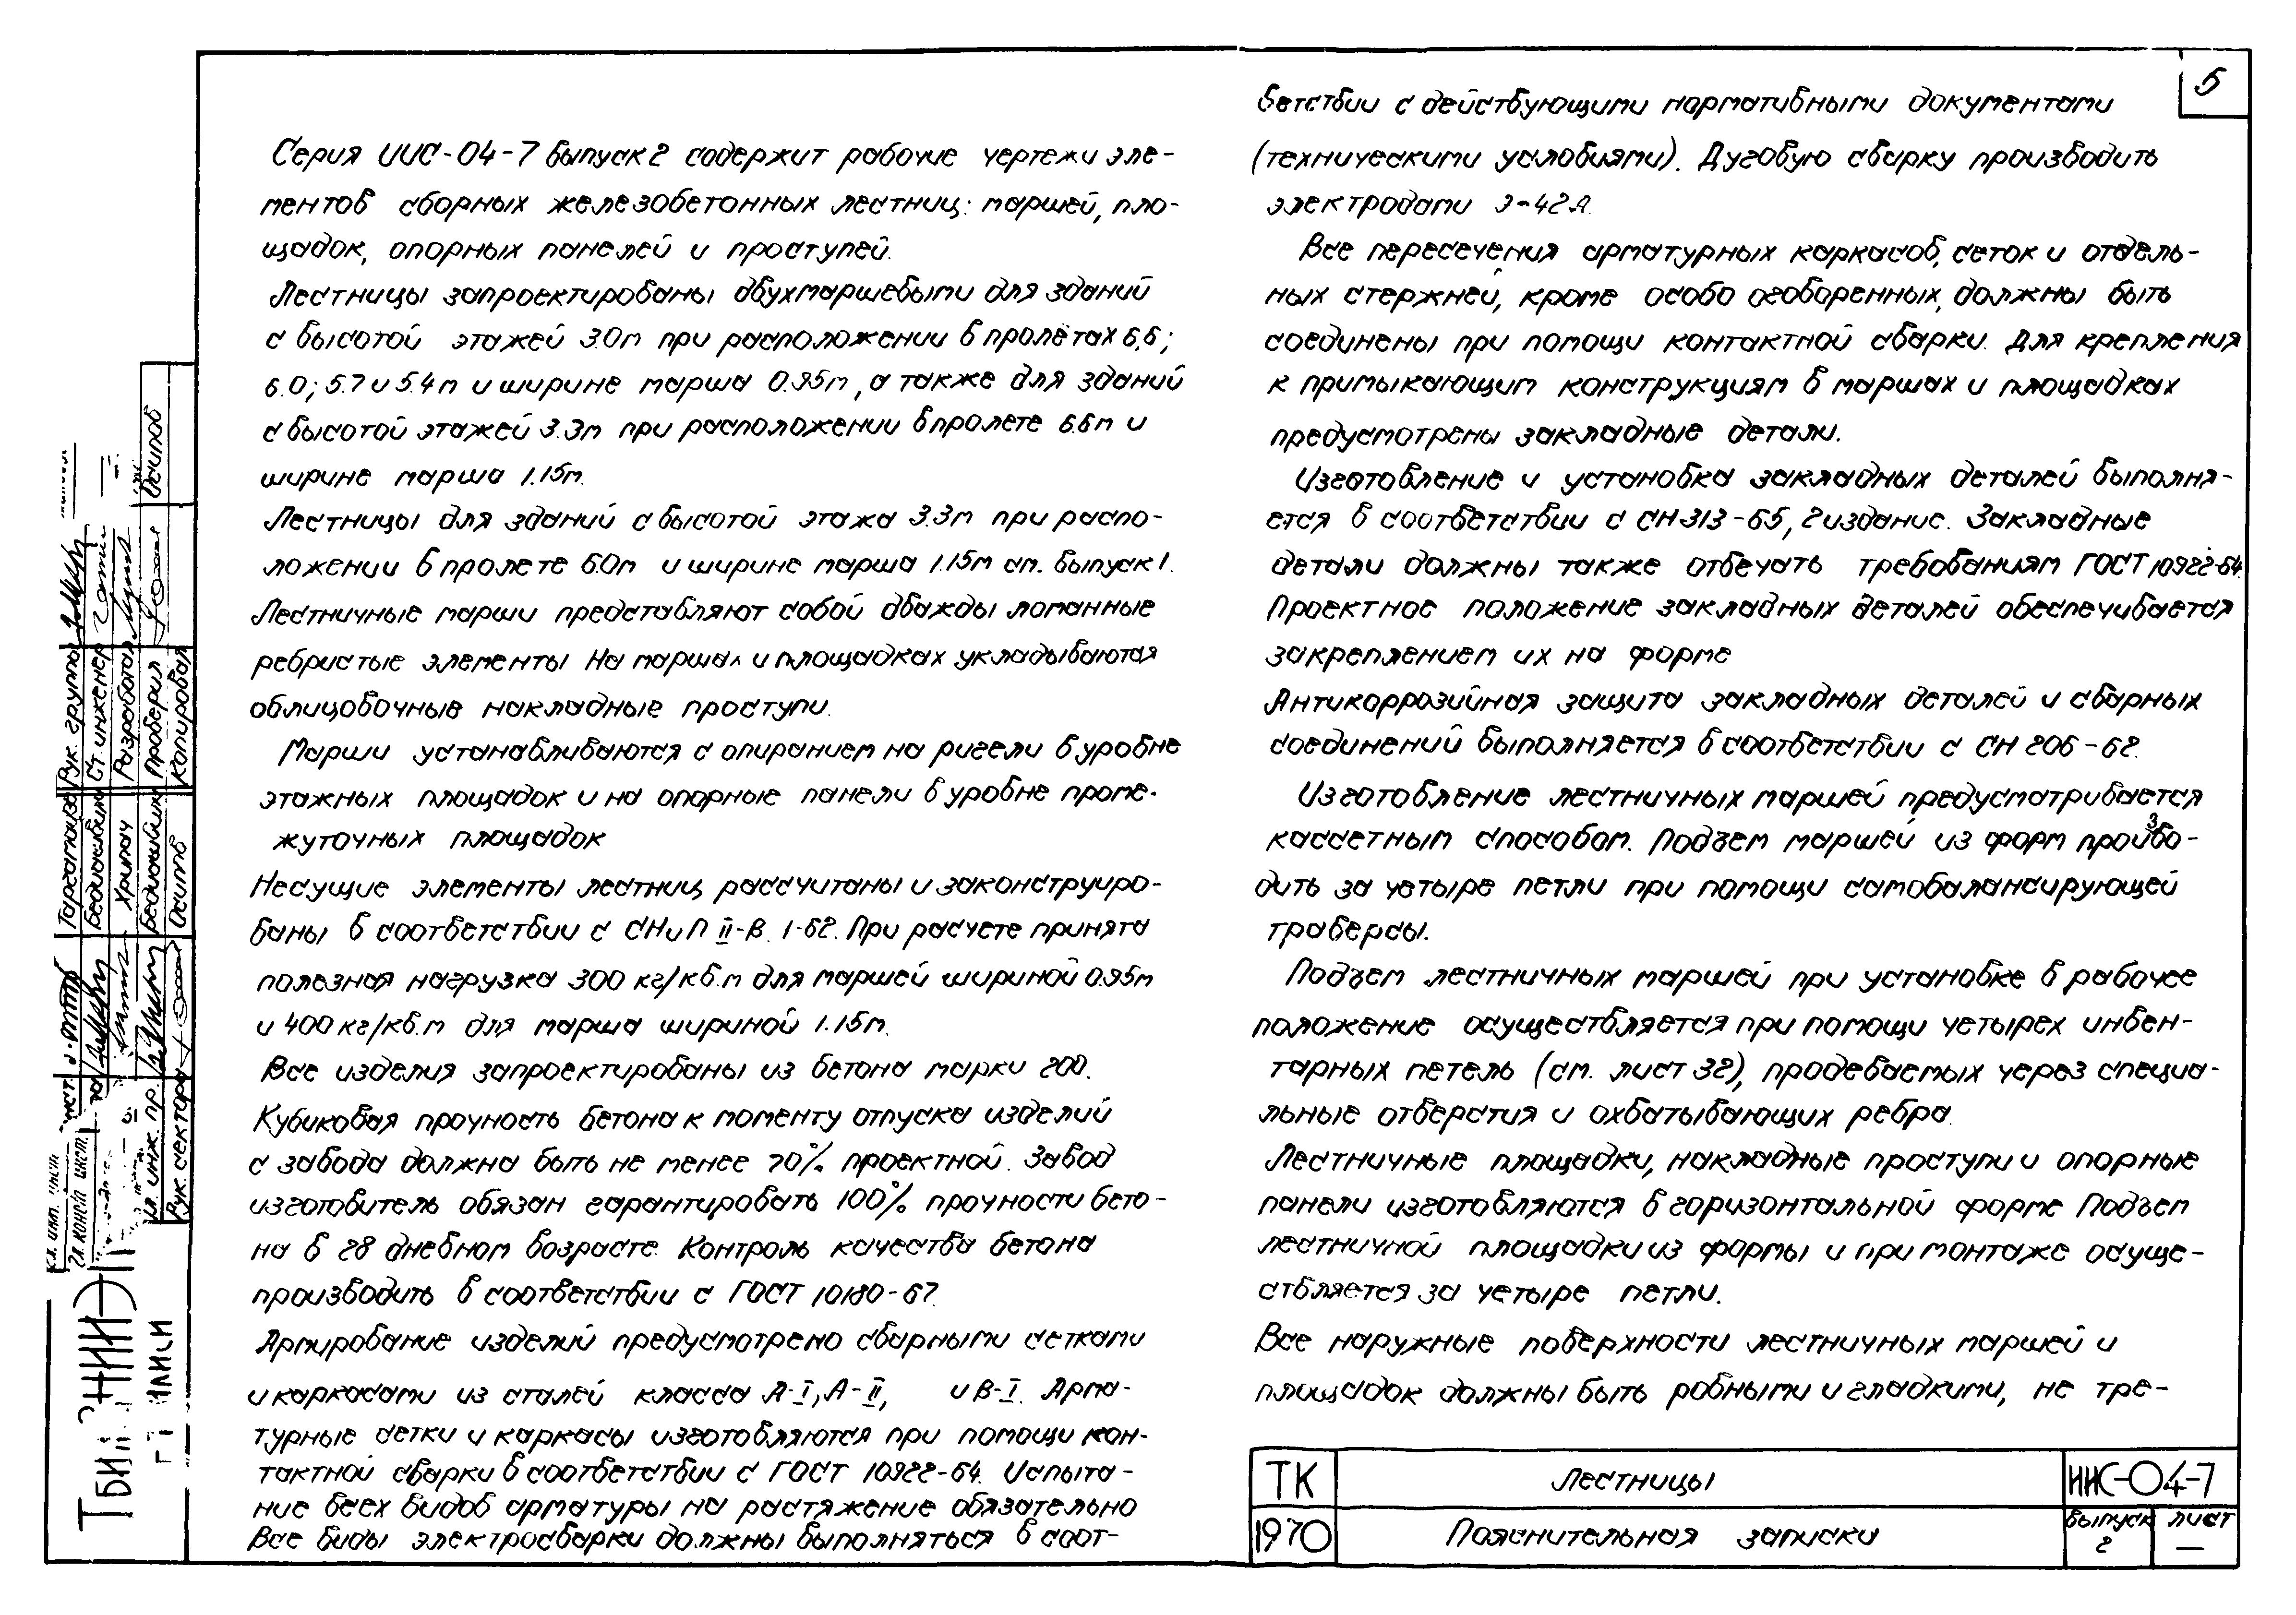 5
Серия ИИС-04-7 выпуск 2 содержит рабочие чертежи эле-
ментов сборных железобетонных лестниц: маршей, пло-
щадок, опорных панелей и проступей.
Лестницы запроектированы двухмаршевыми для зданий
с высотой этажей 3.0м при расположении в пролётах 6,6;
6.0; 5.7 и 5.4м и ширине марша 0.95м, а также для зданий
с высотой этажей 3.3м при расположении в пролете 6.6м и
ширине марша 1.15м.
Лестницы для зданий с высотой этажа 3.3м при распо-
ложении в пролете 6.0м и ширине марша 1.15м см. выпуск 1.
Лестничные марши представляют собой дважды ломанные
ребристые элементы На маршах и площадках укладываются
облицовочные накладные проступи.
Марши устанавливаются с опиранием на ригели в уровне
этажных площадок и на опорные панели в уровне проме-
жуточных площадок
Несущие элементы лестниц рассчитаны и законструиро-
ваны в соответствии с СНиП II-В. 1-62. При расчете принята
полезная нагрузка 300 кг/кв.м для маршей шириной 0.95м
и 400 кг/кв.м для марша шириной 1.15м.
Все изделия запроектированы из бетона марки 200.
Кубиковая прочность бетона к моменту отпуска изделий
с завода должна быть не менее 70% проектной. Завод
изготовитель обязан гарантировать 100% прочности бето-
на в 28 дневном возрасте. Контроль качества бетона
производить в соответствии с ГОСТ 10180-67.
Армирование изделий предусмотрено сварными сетками
и каркасами из сталей класса А-I, А-II, и В-I. Арма-
турные сетки и каркасы изготовляются при помощи кон-
тактной сварки в соответствии с ГОСТ 10922-64. Испыта-
ние всех видов арматуры на растяжение обязательно
Все виды электросварки должны выполняться в соот-
ветствии с действующими нормативными документами
(техническими условиями). Дуговую сварку производить
электродами Э-42А.
Все пересечения арматурных каркасов, сеток и отдель-
ных стержней, кроме особо оговоренных, должны быть
соединены при помощи контактной сварки. Для крепления
к примыкающим конструкциям в маршах и площадках
предусмотрены закладные детали.
Изготовление и установка закладных деталей выполня-
ется в соответствии с СН 313-65, 2 издание. Закладные
детали должны также отвечать требованиям ГОСТ 10922-64.
Проектное положение закладных деталей обеспечивается
закреплением их на форме
Антикоррозийная защита закладных деталей и сварных
соединений выполняется в соответствии с СН 206-62.
Изготовление лестничных маршей предусматривается
кассетным способом. Подъем маршей из форм произво-
дить за четыре петли при помощи самобалансирующей
траверсы.
Подъем лестничных маршей при установке в рабочее
положение осуществляется при помощи четырех инвен-
тарных петель (см. лист 32), продеваемых через специа-
льные отверстия и охватывающих ребра.
Лестничные площадки, накладные проступи и опорные
панели изготовляются в горизонтальной форме Подъем
лестничной площадки из формы и при монтаже осуще-
ствляется за четыре петли.
Все наружные поверхности лестничных маршей и
площадок должны быть ровными и гладкими, не тре-
ТК
Лестницы
ИИС-04-7
1970
Пояснительная записки
выпуск
2
лист
—
Рук. группы
Ст. инженер
Разработал
Проверил
Копировал
Хрипач
Осипов
Осипов
Гл. инж. пр.
Рук. сектора